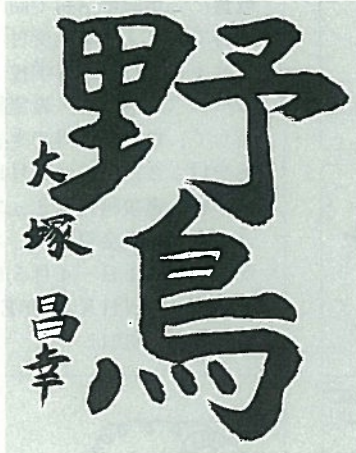 野鳥
大塚昌幸